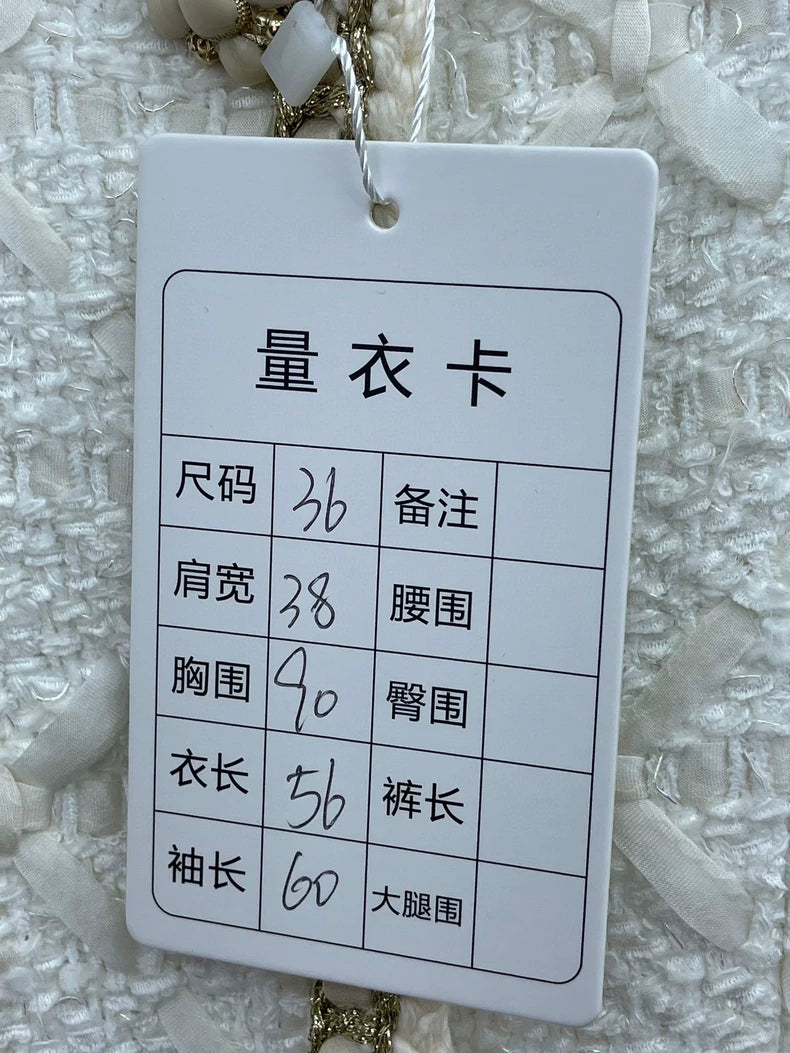 量衣卡
尺码 36 备注
肩宽 38 腰围
胸围 90 臀围
衣长 56 裤长
袖长 60 大腿围